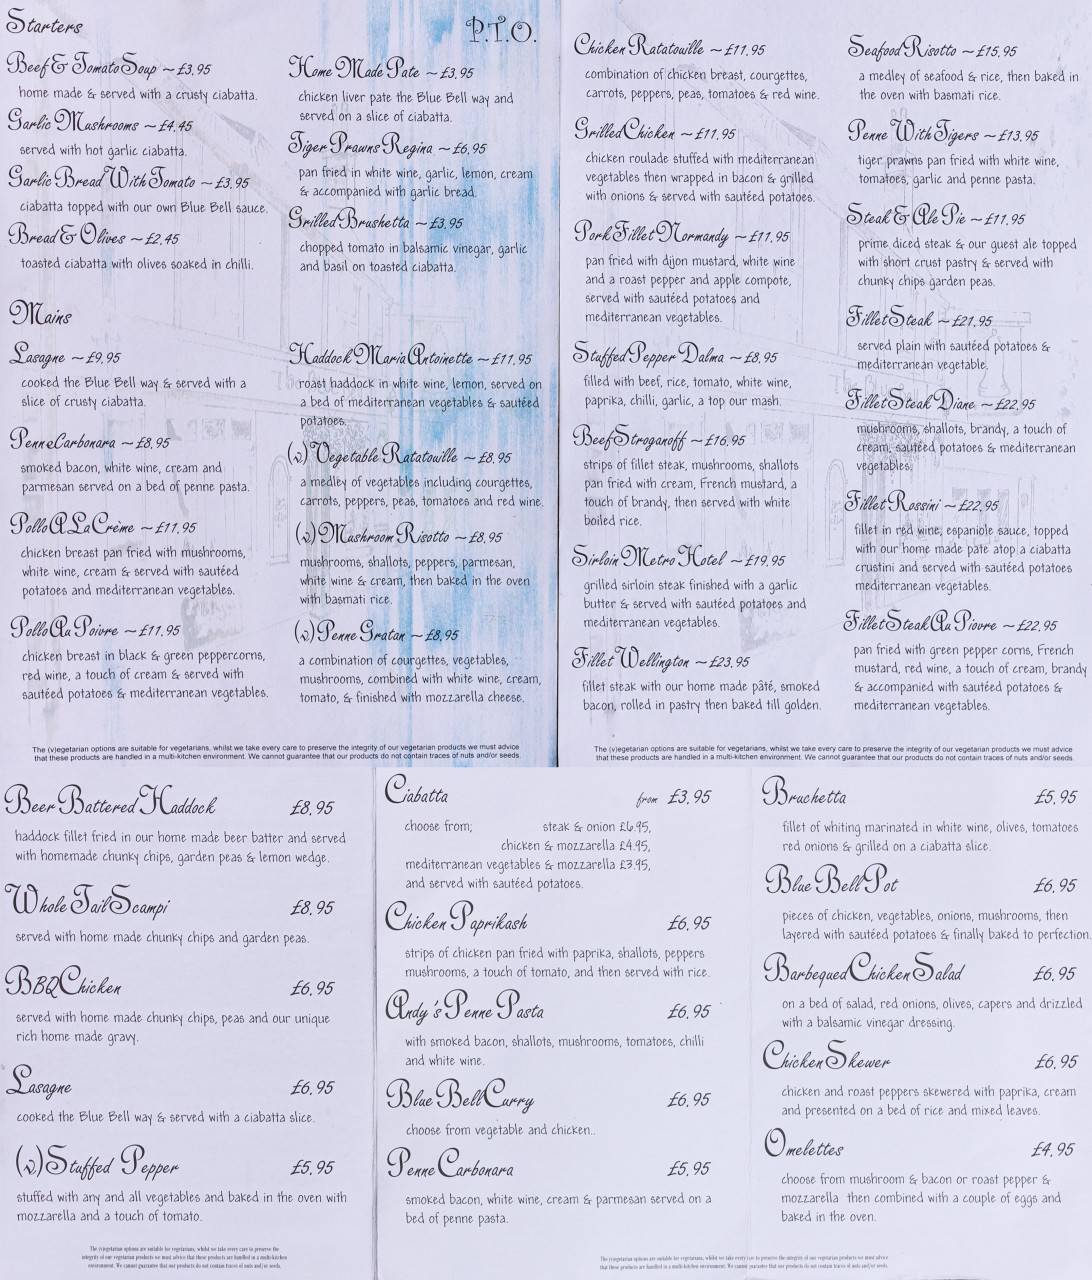 Starters
P.T.O.
Beef & Tomato Soup ~ £3.95
home made & served with a crusty ciabatta.
Garlic Mushrooms ~ £4.45
served with hot garlic ciabatta.
Garlic Bread With Tomato ~ £3.95
ciabatta topped with our own Blue Bell sauce.
Bread & Olives ~ £2.45
toasted ciabatta with olives soaked in chilli.
Home Made Pate ~ £3.95
chicken liver pate the Blue Bell way and
served on a slice of ciabatta.
Tiger Prawns Regina ~ £6.95
pan fried in white wine, garlic, lemon, cream
& accompanied with garlic bread.
Grilled Brushetta ~ £3.95
chopped tomato in balsamic vinegar, garlic
and basil on toasted ciabatta.
Mains
Lasagne ~ £9.95
cooked the Blue Bell way & served with a
slice of crusty ciabatta.
Penne Carbonara ~ £8.95
smoked bacon, white wine, cream and
parmesan served on a bed of penne pasta.
Pollo A La Crème ~ £11.95
chicken breast pan fried with mushrooms,
white wine, cream & served with sautéed
potatoes and mediterranean vegetables.
Pollo Au Poivre ~ £11.95
chicken breast in black & green peppercorns,
red wine, a touch of cream & served with
sautéed potatoes & mediterranean vegetables.
Haddock Maria Antoinette ~ £11.95
roast haddock in white wine, lemon, served on
a bed of mediterranean vegetables & sautéed
potatoes.
(v) Vegetable Ratatouille ~ £8.95
a medley of vegetables including courgettes,
carrots, peppers, peas, tomatoes and red wine.
(v) Mushroom Risotto ~ £8.95
mushrooms, shallots, peppers, parmesan,
white wine & cream, then baked in the oven
with basmati rice.
(v) Penne Gratan ~ £8.95
a combination of courgettes, vegetables,
mushrooms, combined with white wine, cream,
tomato, & finished with mozzarella cheese.
The (v)egetarian options are suitable for vegetarians, whilst we take every care to preserve the integrity of our vegetarian products we must advice
that these products are handled in a multi-kitchen environment. We cannot guarantee that our products do not contain traces of nuts and/or seeds.
Chicken Ratatouille ~ £11.95
combination of chicken breast, courgettes,
carrots, peppers, peas, tomatoes & red wine.
Grilled Chicken ~ £11.95
chicken roulade stuffed with mediterranean
vegetables then wrapped in bacon & grilled
with onions & served with sautéed potatoes.
Pork Fillet Normandy ~ £11.95
pan fried with dijon mustard, white wine
and a roast pepper and apple compote,
served with sautéed potatoes and
mediterranean vegetables.
Stuffed Pepper Dalma ~ £8.95
filled with beef, rice, tomato, white wine,
paprika, chilli, garlic, a top our mash.
Beef Stroganoff ~ £16.95
strips of fillet steak, mushrooms, shallots
pan fried with cream, French mustard, a
touch of brandy, then served with white
boiled rice.
Sirloin Metro Hotel ~ £19.95
grilled sirloin steak finished with a garlic
butter & served with sautéed potatoes and
mediterranean vegetables.
Fillet Wellington ~ £23.95
fillet steak with our home made pâté, smoked
bacon, rolled in pastry then baked till golden.
Seafood Risotto ~ £15.95
a medley of seafood & rice, then baked in
the oven with basmati rice.
Penne With Tigers ~ £13.95
tiger prawns pan fried with white wine,
tomatoes, garlic and penne pasta.
Steak & Ale Pie ~ £11.95
prime diced steak & our guest ale topped
with short crust pastry & served with
chunky chips garden peas.
Fillet Steak ~ £21.95
served plain with sautéed potatoes &
mediterranean vegetable.
Fillet Steak Diane ~ £22.95
mushrooms, shallots, brandy, a touch of
cream, sautéed potatoes & mediterranean
vegetables.
Fillet Rossini ~ £22.95
fillet in red wine, espaniole sauce, topped
with our home made pate atop a ciabatta
crustini and served with sautéed potatoes
mediterranean vegetables.
Fillet Steak Au Piovre ~ £22.95
pan fried with green pepper corns, French
mustard, red wine, a touch of cream, brandy
& accompanied with sautéed potatoes &
mediterranean vegetables.
The (v)egetarian options are suitable for vegetarians, whilst we take every care to preserve the integrity of our vegetarian products we must advice
that these products are handled in a multi-kitchen environment. We cannot guarantee that our products do not contain traces of nuts and/or seeds.
Beer Battered Haddock £8.95
haddock fillet fried in our home made beer batter and served
with homemade chunky chips, garden peas & lemon wedge.
Whole Tail Scampi £8.95
served with home made chunky chips and garden peas.
BBQ Chicken £6.95
served with home made chunky chips, peas and our unique
rich home made gravy.
Lasagne £6.95
cooked the Blue Bell way & served with a ciabatta slice.
(v) Stuffed Pepper £5.95
stuffed with any and all vegetables and baked in the oven with
mozzarella and a touch of tomato.
The (v)egetarian options are suitable for vegetarians, whilst we take every care to preserve the
integrity of our vegetarian products we must advice that these products are handled in a multi-kitchen
environment. We cannot guarantee that our products do not contain traces of nuts and/or seeds.
Ciabatta from £3.95
choose from; steak & onion £6.95,
chicken & mozzarella £4.95,
mediterranean vegetables & mozzarella £3.95,
and served with sautéed potatoes.
Chicken Paprikash £6.95
strips of chicken pan fried with paprika, shallots, peppers
mushrooms, a touch of tomato, and then served with rice.
Andy's Penne Pasta £6.95
with smoked bacon, shallots, mushrooms, tomatoes, chilli
and white wine.
Blue Bell Curry £6.95
choose from vegetable and chicken..
Penne Carbonara £5.95
smoked bacon, white wine, cream & parmesan served on a
bed of penne pasta.
Bruchetta £5.95
fillet of whiting marinated in white wine, olives, tomatoes
red onions & grilled on a ciabatta slice.
Blue Bell Pot £6.95
pieces of chicken, vegetables, onions, mushrooms, then
layered with sautéed potatoes & finally baked to perfection.
Barbequed Chicken Salad £6.95
on a bed of salad, red onions, olives, capers and drizzled
with a balsamic vinegar dressing.
Chicken Skewer £6.95
chicken and roast peppers skewered with paprika, cream
and presented on a bed of rice and mixed leaves.
Omelettes £4.95
choose from mushroom & bacon or roast pepper &
mozzarella then combined with a couple of eggs and
baked in the oven.
The (v)egetarian options are suitable for vegetarians, whilst we take every care to preserve the integrity of our vegetarian products we must advice
that these products are handled in a multi-kitchen environment. We cannot guarantee that our products do not contain traces of nuts and/or seeds.